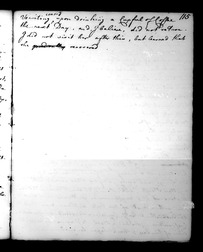 115
ceased
Vomiting upon drinking a Cupful of Coffee
the next Day, and I believe, did not return.
I did not visit her after this, but heard that
she gradually recovered